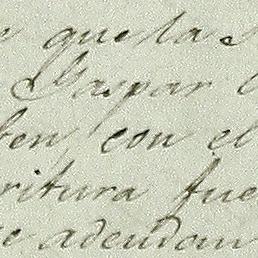 que la
Gaspar
ten, con el
ritura fue
adeudan